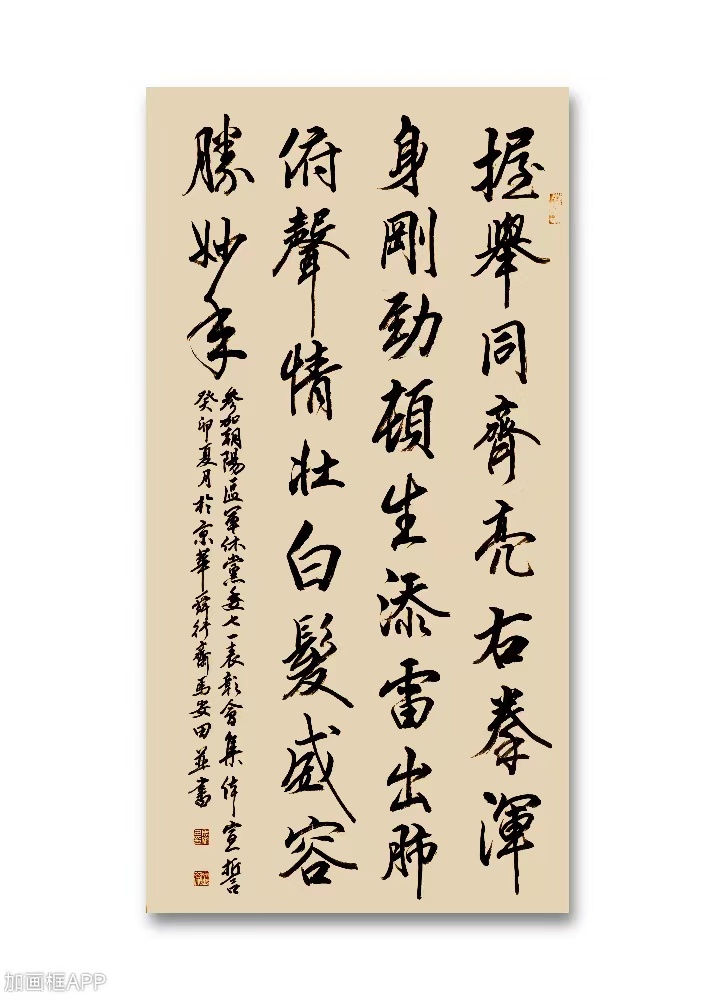 握舉同齊亮右拳渾
身剛勁頓生添雷出肺
俯聲情壯白髮威容
勝妙年
參加朝陽區軍休黨委七一表彰會集体宣誓
癸卯夏月於京華舜行齋馬安田並書
加画框APP